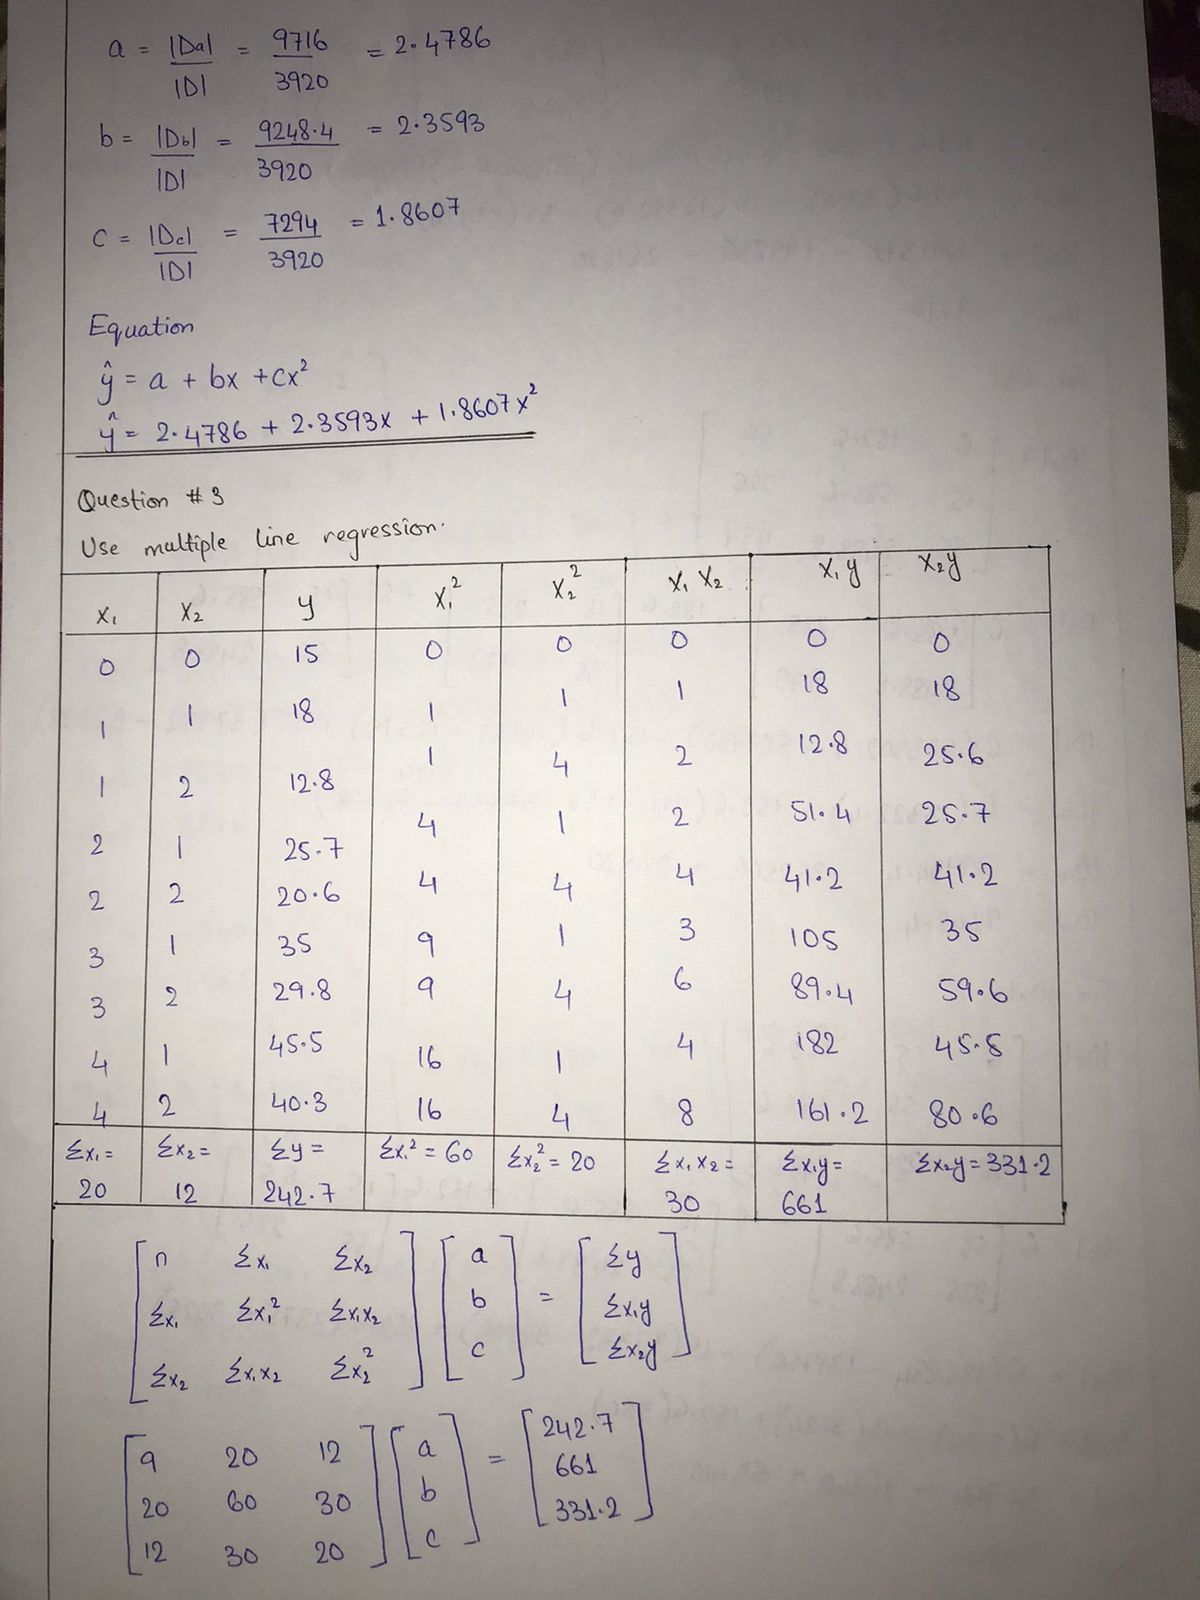 a = |Da| / |D| = 9716 / 3920 = 2.4786
b = |Db| / |D| = 9248.4 / 3920 = 2.3593
c = |Dc| / |D| = 7294 / 3920 = 1.8607
Equation
ŷ = a + bx + cx²
ŷ = 2.4786 + 2.3593x + 1.8607x²
Question #3
Use multiple line regression.
x₁ x₂ y x₁² x₂² x₁ x₂ x₁y x₂y
0 0 15 0 0 0 0 0
1 1 18 1 1 1 18 18
1 2 12.8 1 4 2 12.8 25.6
2 1 25.7 4 1 2 51.4 25.7
2 2 20.6 4 4 4 41.2 41.2
3 1 35 9 1 3 105 35
3 2 29.8 9 4 6 89.4 59.6
4 1 45.5 16 1 4 182 45.5
4 2 40.3 16 4 8 161.2 80.6
Σx₁ = 20 Σx₂ = 12 Σy = 242.7 Σx₁² = 60 Σx₂² = 20 Σx₁x₂ = 30 Σx₁y = 661 Σx₂y = 331.2
[n Σx₁ Σx₂] [a] = [Σy]
[Σx₁ Σx₁² Σx₁x₂] [b] [Σx₁y]
[Σx₂ Σx₁x₂ Σx₂²] [c] [Σx₂y]
[9 20 12] [a] = [242.7]
[20 60 30] [b] [661]
[12 30 20] [c] [331.2]